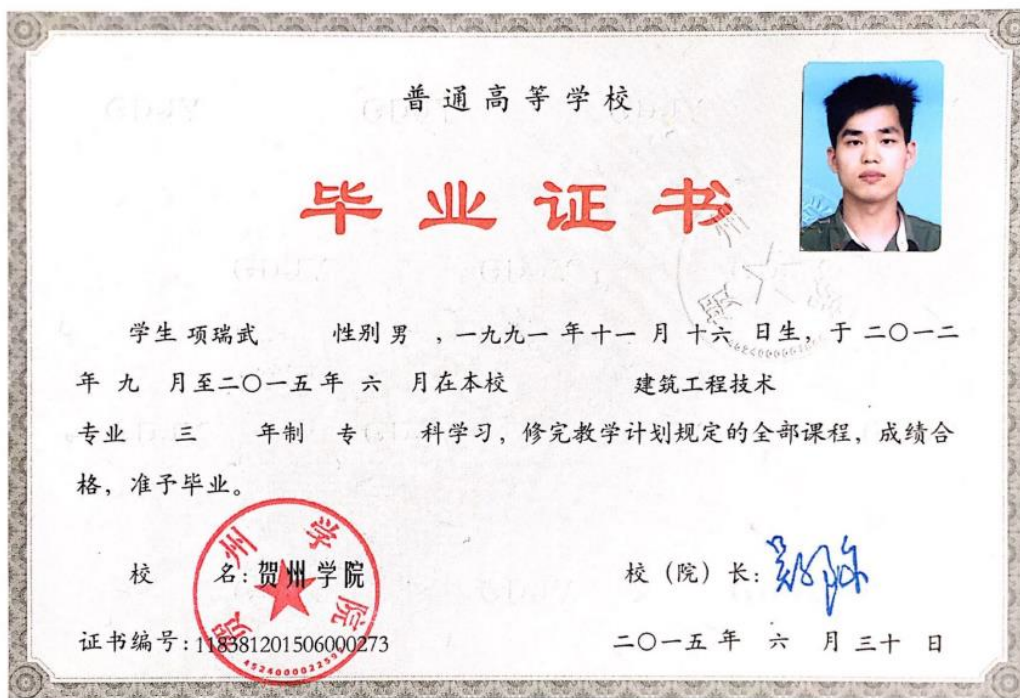 普通高等学校
毕业证书
学生 项瑞武 性别 男 ，一九九一 年 十一 月 十六 日生，于 二〇一二
年 九 月至 二〇一五 年 六 月在本校 建筑工程技术
专业 三 年制 专 科学习，修完教学计划规定的全部课程，成绩合
格，准予毕业。
校 名：贺州学院
校（院）长：
证书编号：118381201506000273
二〇一五 年 六 月 三十 日
贺州学院